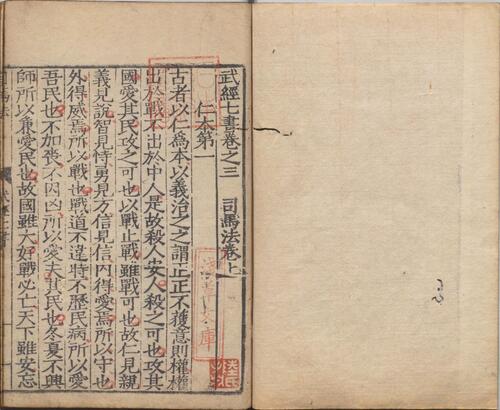 武經七書卷之三　司馬法卷上
仁本第一
古者以仁爲本以義治之之謂正正不獲意則權權
出於戰不出於中人是故殺人安人殺之可也攻其
國愛其民攻之可也以戰止戰雖戰可也故仁見親
義見說智見恃勇見方信見信内得愛焉所以守也
外得威焉所以戰也戰道不違時不歷民病所以愛
吾民也不加喪不因凶所以愛夫其民也冬夏不興
師所以兼愛民也故國雖大好戰必亡天下雖安忘